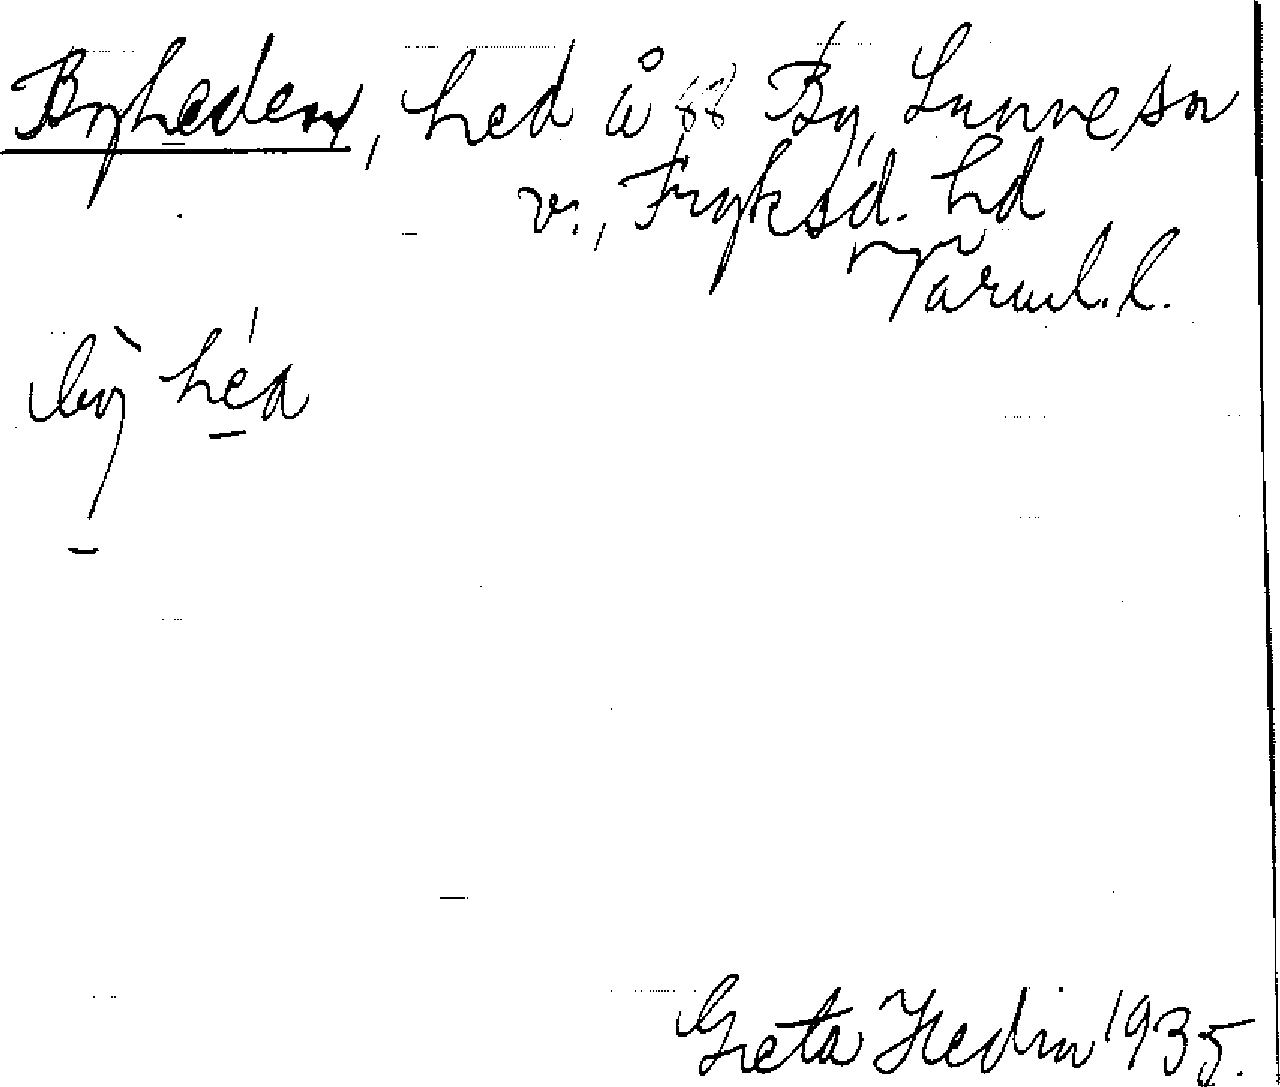 Byheden, hed å 88 By, Sunne sn
v., Fryksd. hd
Värml. l.
bỳ̱ hé̱a
Greta Hedin 1935.